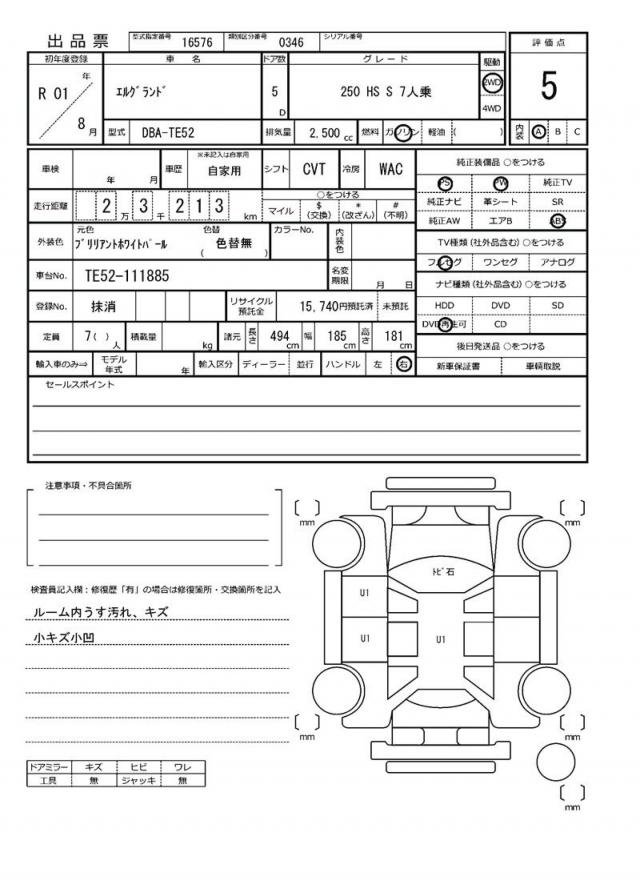 出品票
型式指定番号 16576 類別区分番号 0346 シリアル番号
評価点
5
内装 A B C
初年度登録 車名 ドア数 グレード 駆動
R 01 年 8 月
エルグランド
5 D
250 HS S 7人乗
2WD
4WD
型式 DBA-TE52 排気量 2,500 cc 燃料 ガソリン 軽油 ( )
車検 年 月 車歴 ※未記入は自家用 自家用 シフト CVT 冷房 WAC
走行距離 2 万 3 千 2 1 3 km
○をつける
マイル $(交換) *(改ざん) #(不明)
外装色 元色 ブリリアントホワイトパール 色替 ( 色替無 ) カラーNo. 内装色
車台No. TE52-111885 名変期限 月 日
登録No. 抹消 リサイクル預託金 15,740円預託済 未預託
定員 7( ) 人 積載量 kg 諸元 長さ 494 cm 幅 185 cm 高さ 181 cm
輸入車のみ⇒ モデル年式 年 輸入区分 ディーラー 並行 ハンドル 左 右
純正装備品 ○をつける
PS PW 純正TV
純正ナビ 革シート SR
純正AW エアB ABS
TV種類(社外品含む)○をつける
フルセグ ワンセグ アナログ
ナビ種類(社外品含む)○をつける
HDD DVD SD
DVD再生可 CD
後日発送品 ○をつける
新車保証書 車輌取説
セールスポイント
注意事項・不具合箇所
検査員記入欄：修復歴「有」の場合は修復箇所・交換箇所を記入
ルーム内うす汚れ、キズ
小キズ小凹
ドアミラー キズ ヒビ ワレ
工具 無 ジャッキ 無
[ ] mm
[ ] mm
トビ石
U1
U1
U1
[ ] mm
[ ] mm
[ ] mm